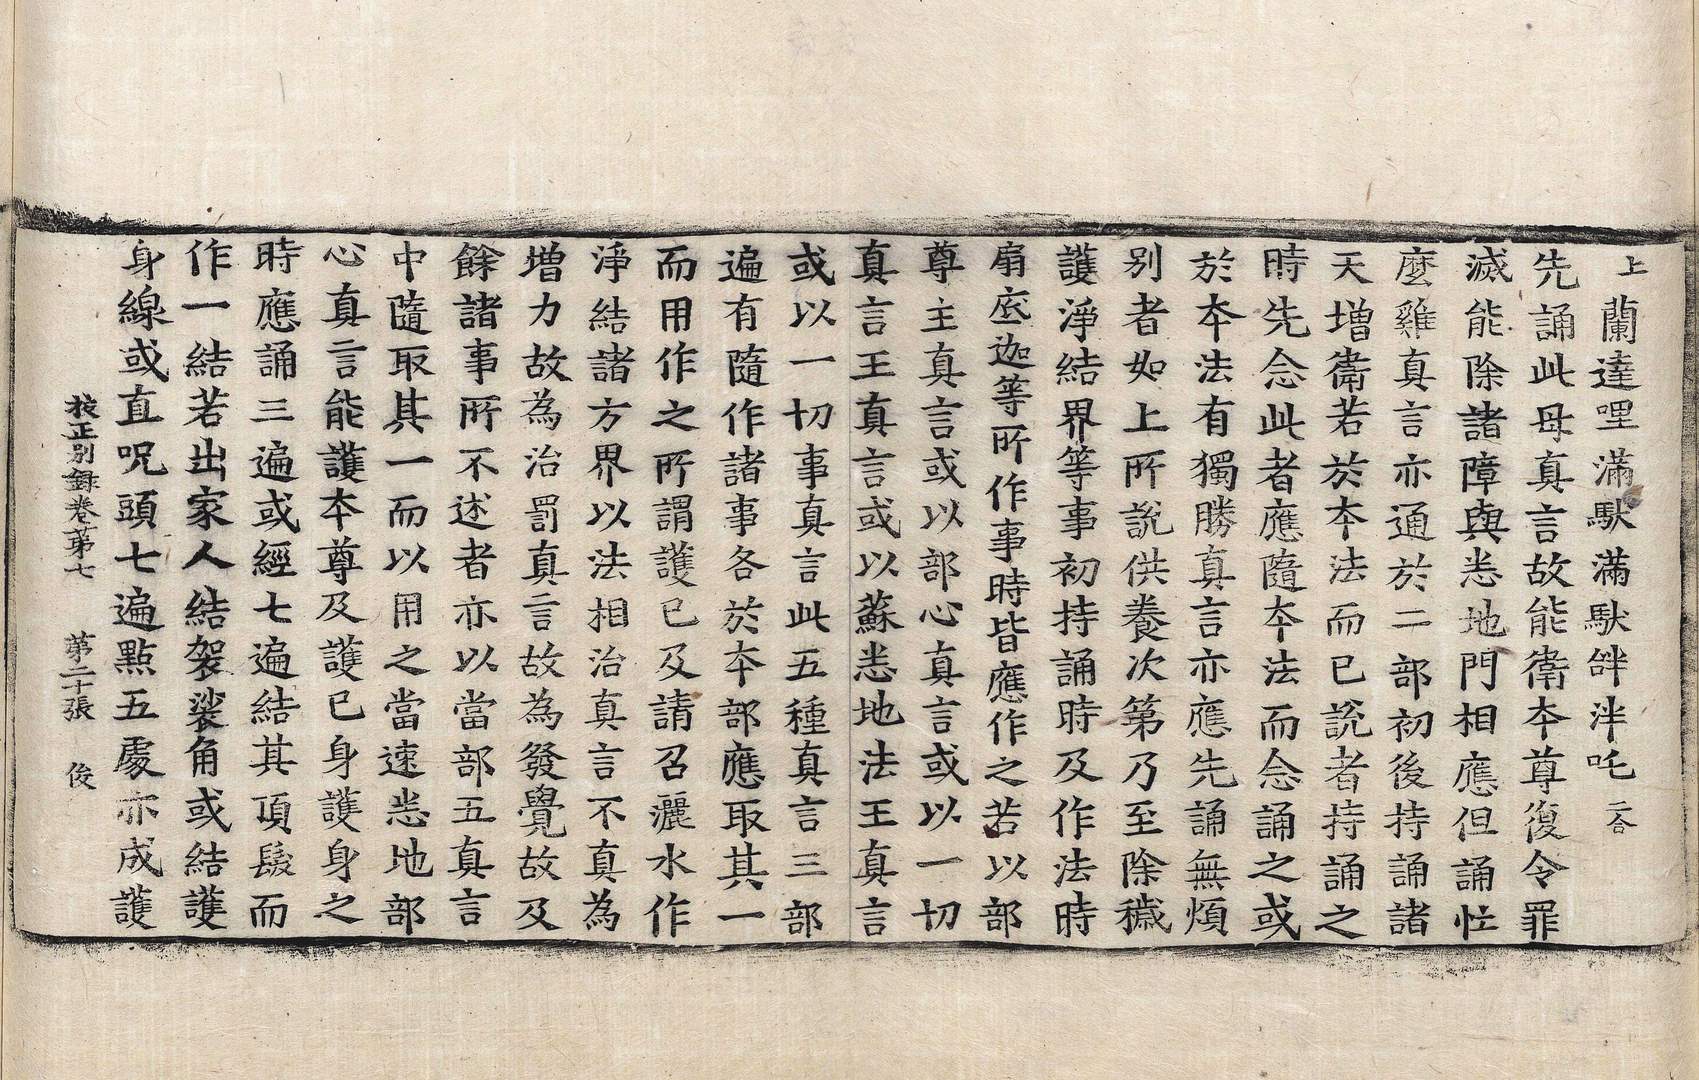 上蘭達哩滿馱滿馱絆泮吒二合
先誦此母真言故能衛本尊復令罪
滅能除諸障與悉地門相應但誦忙
麼雞真言亦通於二部初後持誦諸
天增衛若於本法而已說者持誦之
時先念此者應隨本法而念誦之或
於本法有獨勝真言亦應先誦無煩
別者如上所說供養次第乃至除穢
護淨結界等事初持誦時及作法時
扇底迦等所作事時皆應作之若以部
尊主真言或以部心真言或以一切
真言王真言或以蘇悉地法王真言
或以一切事真言此五種真言三部
遍有隨作諸事各於本部應取其一
而用作之所謂護已及請召灑水作
淨結諸方界以法相治真言不真為
增力故為治罰真言故為發覺故及
餘諸事所不述者亦以當部五真言
中隨取其一而以用之當速悉地部
心真言能護本尊及護已身護身之
時應誦三遍或經七遍結其頂髮而
作一結若出家人結袈裟角或結護
身線或直呪頭七遍點五處亦成護
校正別錄卷第七 第二十張 俊